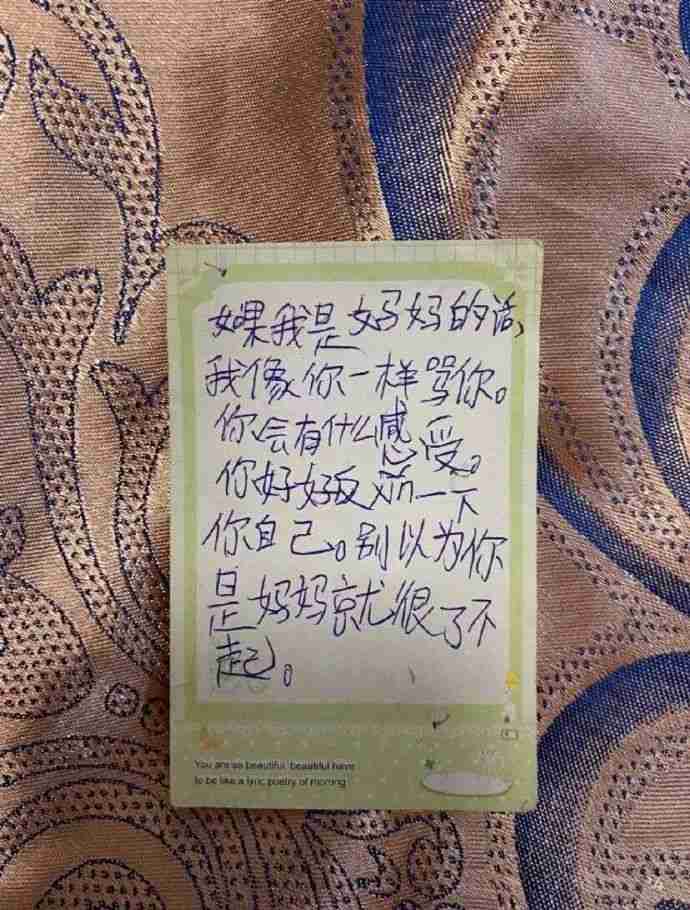 如果我是妈妈的话,
我像你一样骂你。
你会有什么感受。
你好好反对一下
你自己。别以为你
是妈妈就很了不
起。
You are so beautiful, beautiful have
to be like a lyric poetry of morning